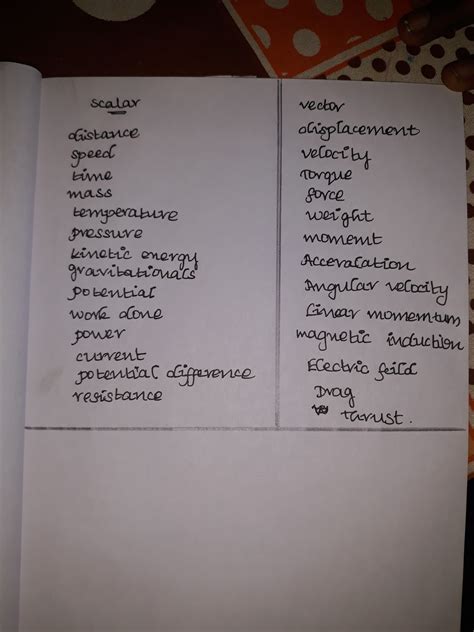 scalar
distance
speed
time
mass
temperature
pressure
kinetic energy
gravitationals
potential
work done
power
current
potential difference
resistance
vector
displacement
velocity
Torque
force
weight
moment
Acceralation
Angular velocity
Linear momentum
magnetic induction
Electric feild
Drag
thrust.